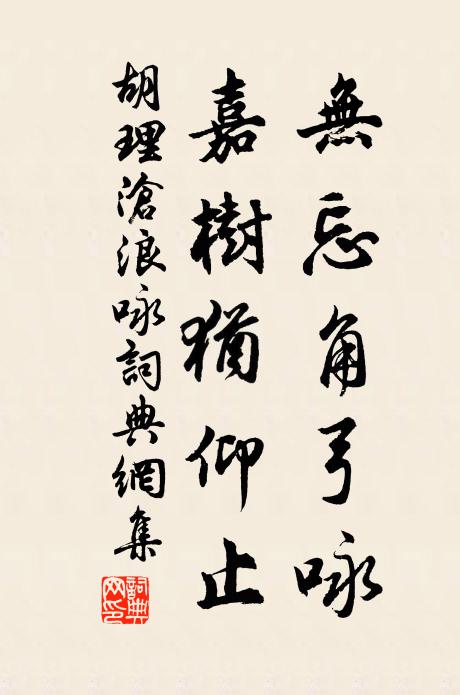 無忘角弓咏
嘉樹猶仰止
胡理滄浪咏詞典網集
詞典網印